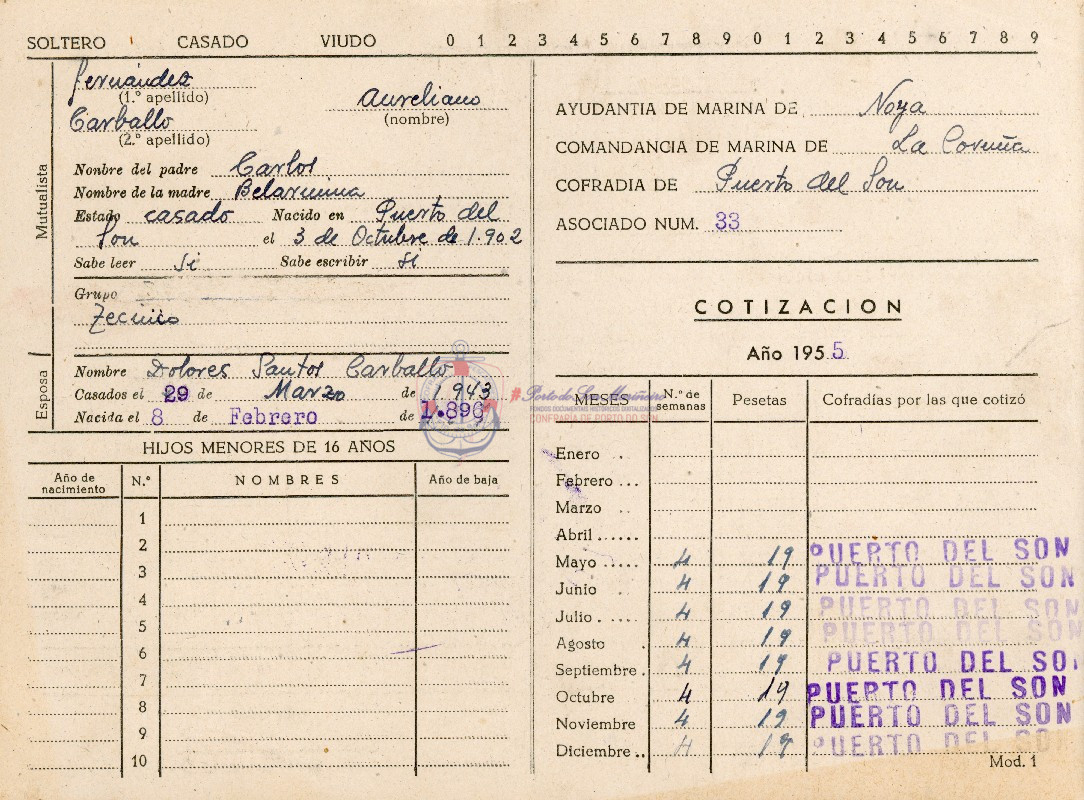 SOLTERO CASADO VIUDO 0 1 2 3 4 5 6 7 8 9 0 1 2 3 4 5 6 7 8 9
Fernández
(1.º apellido)
Aureliano
(nombre)
Carballo
(2.º apellido)
Mutualista
Nonbre del padre Carlos
Nombre de la madre Belarmina
Estado casado Nacido en Puerto del
Son el 3 de Octubre de 1.902
Sabe leer si Sabe escribir si
Grupo
Tecnico
Esposa
Nombre Dolores Santos Carballo
Casados el 29 de Marzo de 1.943
Nacida el 8 de Febrero de 1.896
HIJOS MENORES DE 16 AÑOS
Año de nacimiento N.º NOMBRES Año de baja
1
2
3
4
5
6
7
8
9
10
AYUDANTIA DE MARINA DE Noya
COMANDANCIA DE MARINA DE La Coruña
COFRADIA DE Puerto del Son
ASOCIADO NUM. 33
COTIZACION
Año 195 5
# Porto do Son Mariñeiro
FONDOS DOCUMENTAIS HISTÓRICOS DIGITALIZADOS
CONFRARÍA DE PORTO DO SON
MESES N.º de semanas Pesetas Cofradías por las que cotizó
Enero ..
Febrero ...
Marzo ..
Abril ......
Mayo ..... 4 19 PUERTO DEL SON
Junio .. 4 19 PUERTO DEL SON
Julio . .... 4 19 PUERTO DEL SON
Agosto . 4 19 PUERTO DEL SON
Septiembre . 4 19 PUERTO DEL SO
Octubre 4 19 PUERTO DEL SON
Noviembre 4 19 PUERTO DEL SON
Diciembre .. 4 19 PUERTO DEL SON
Mod. 1